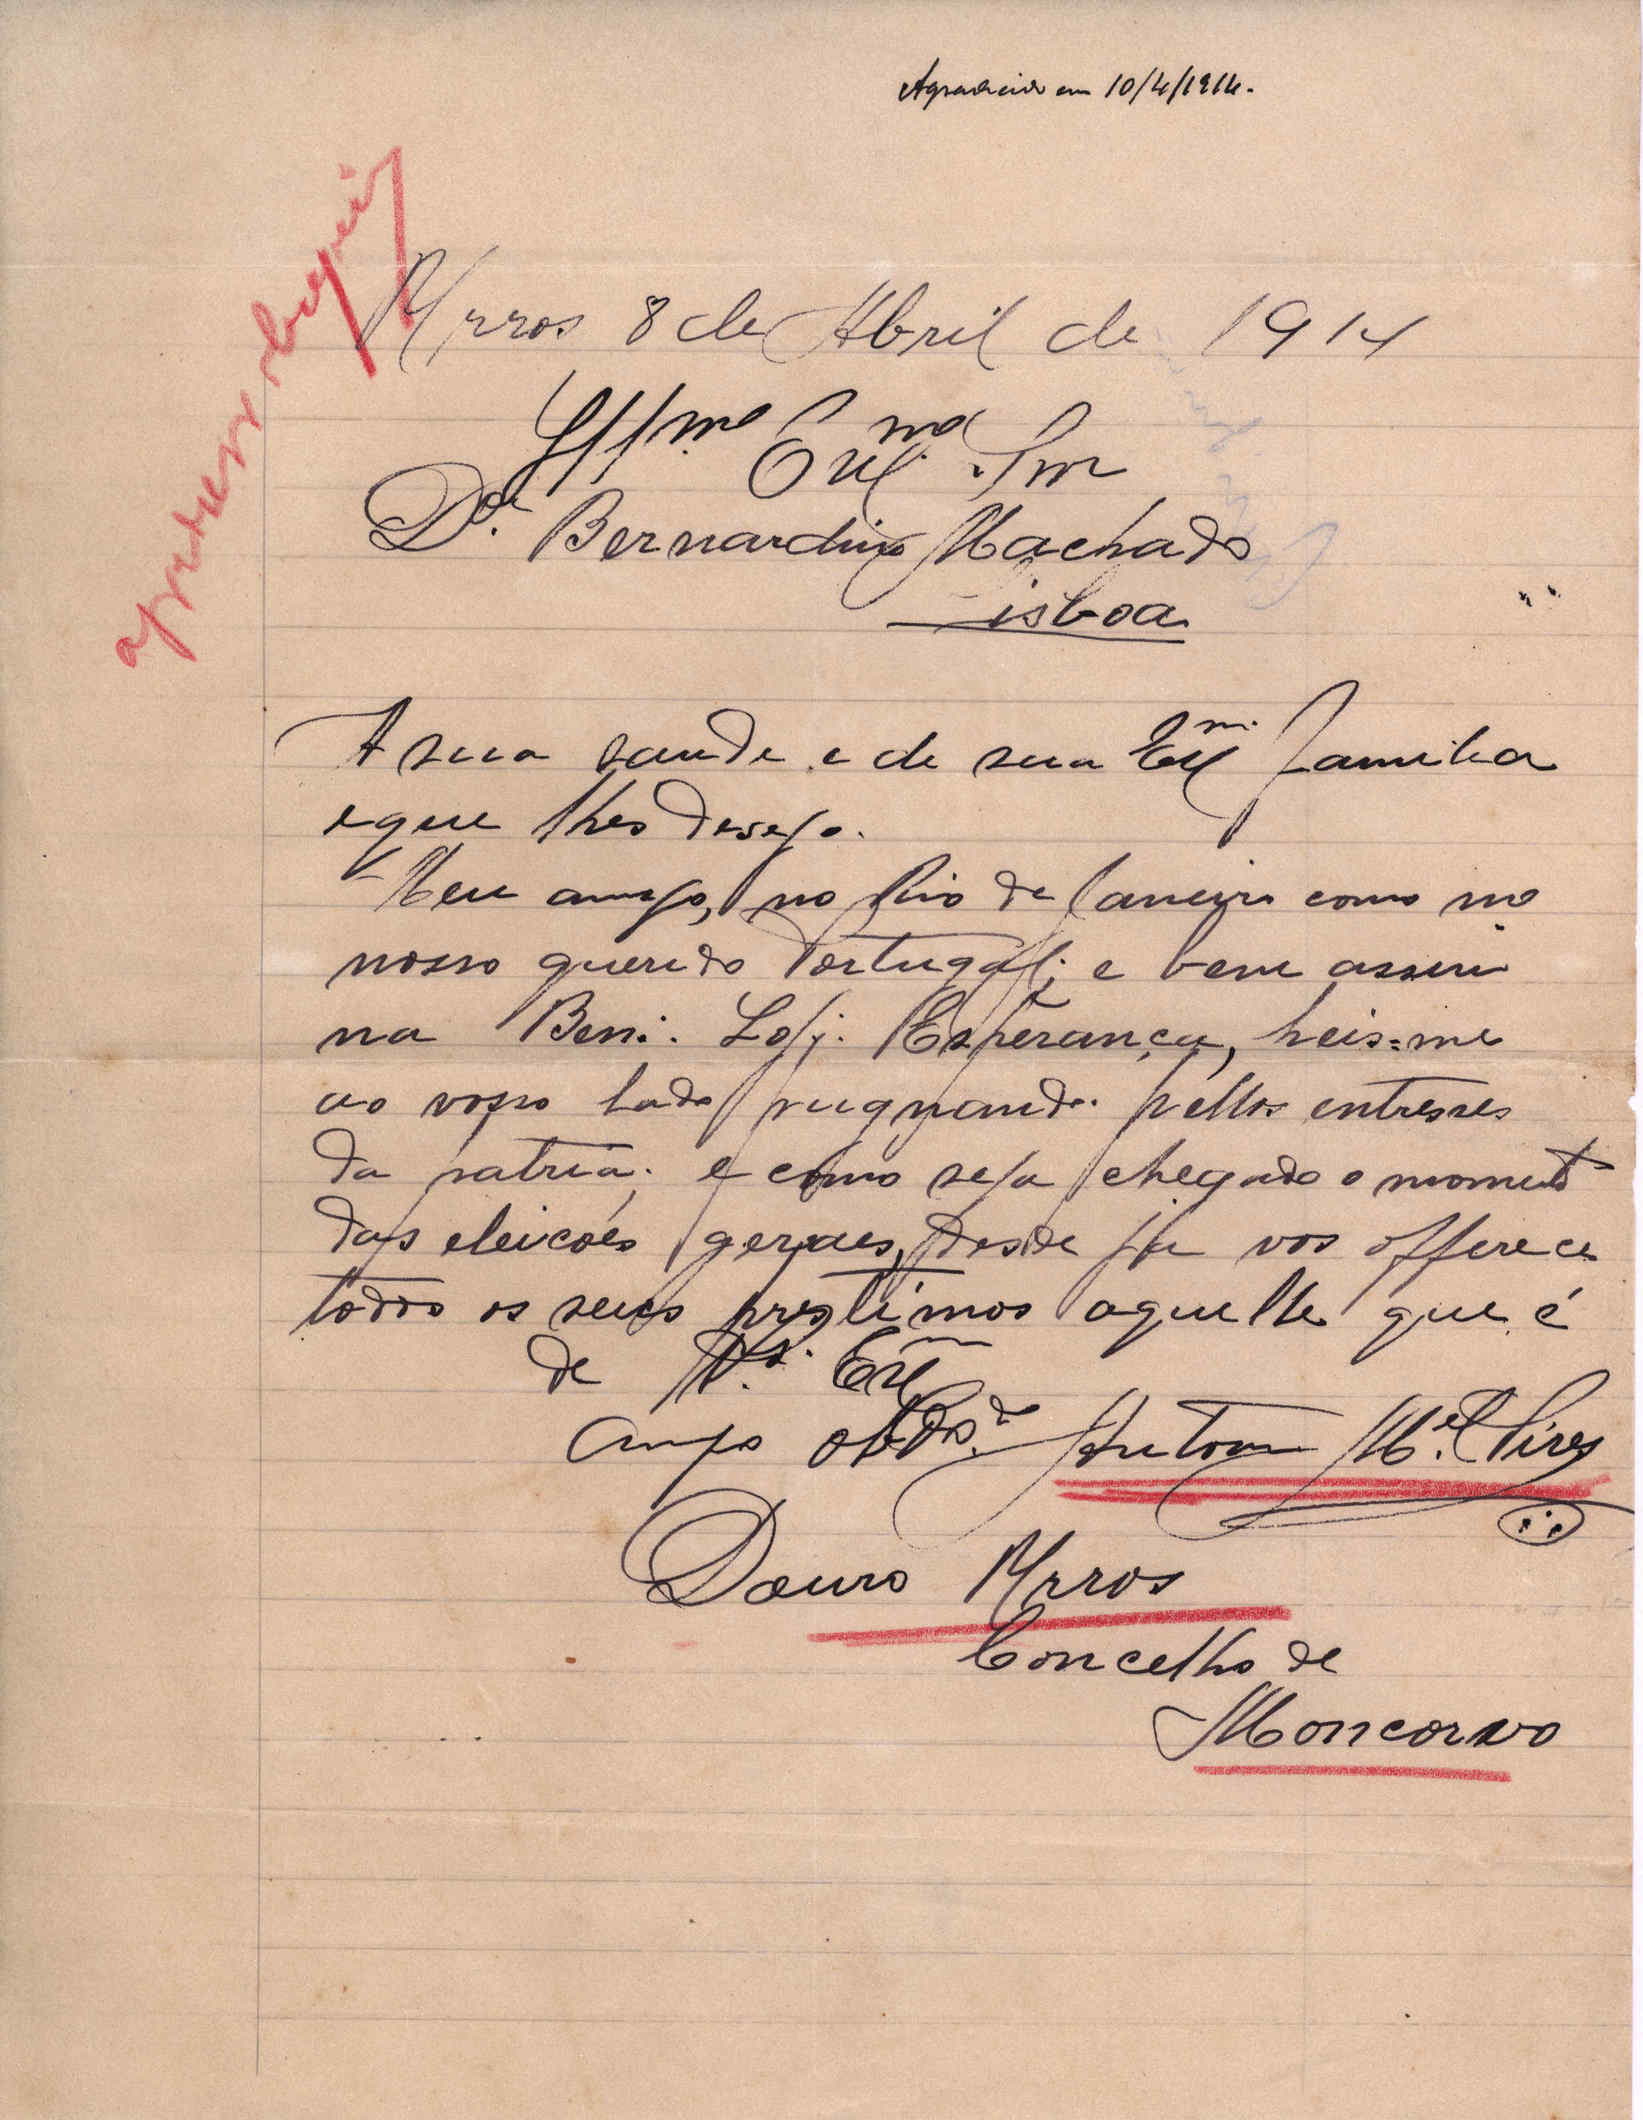 Agradecido em 10/4/1914.
Urros 8 de Abril de 1914
Illmo Exmo Snr
Dr. Bernardino Machado
Lisboa
A sua saude e de sua Exm. familia
e que lhes desejo.
Meu amigo, no Rio de Janeiro como no
nosso querido Portugal; e bem assim
na Ben∴ Loj∴ Esperança, heis-me
ao vosso lado pugnando pellos entresses
da patria; e como seja chegado o momento
das eleicões geraes, desde já vos offerece
todos os seus prestimos aquelle que é
de Va. Exm
Amgo obdo. Antonio Mel. Pires
Douro Urros
Concelho de
Moncorvo